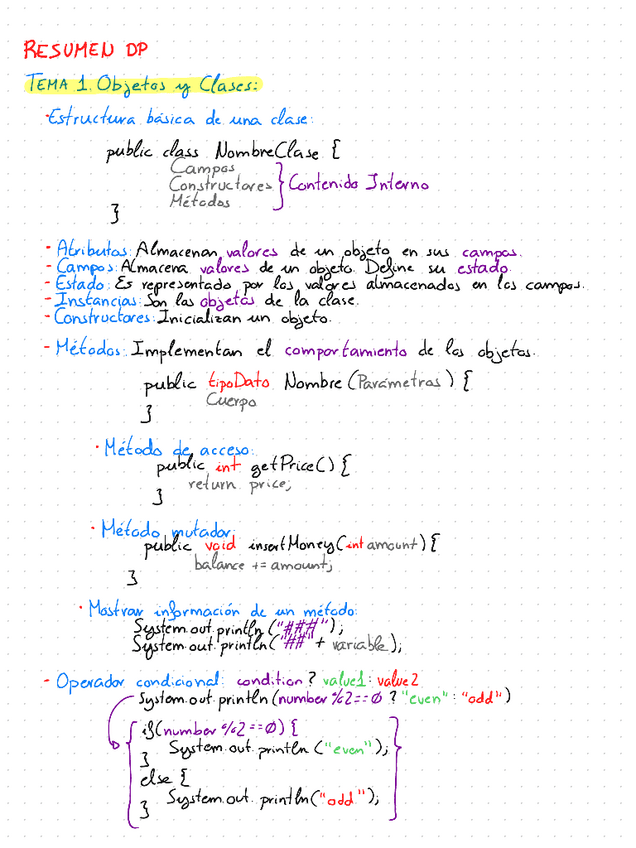 RESUMEN DP
TEMA 1. Objetos y Clases:
·Estructura básica de una clase:
public class NombreClase {
Campos
Constructores } Contenido Interno
Métodos
}
- Atributos: Almacenan valores de un objeto en sus campos.
- Campos: Almacena valores de un objeto. Define su estado.
- Estado: Es representado por los valores almacenados en los campos.
- Instancias: Son los objetos de la clase.
- Constructores: Inicializan un objeto.
- Métodos: Implementan el comportamiento de los objetos.
public tipoDato Nombre (Parámetros) {
Cuerpo
}
· Método de acceso:
public int getPrice() {
return price;
}
· Método mutador:
public void insertMoney(int amount) {
balance += amount;
}
· Mostrar información de un método:
System.out.println("###");
System.out.println("##" + variable);
- Operador condicional: condition ? value1 : value2
System.out.println (number %2==0 ? "even" : "odd")
if(number %2==0) {
System.out.println ("even");
}
else {
System.out.println("odd");
}